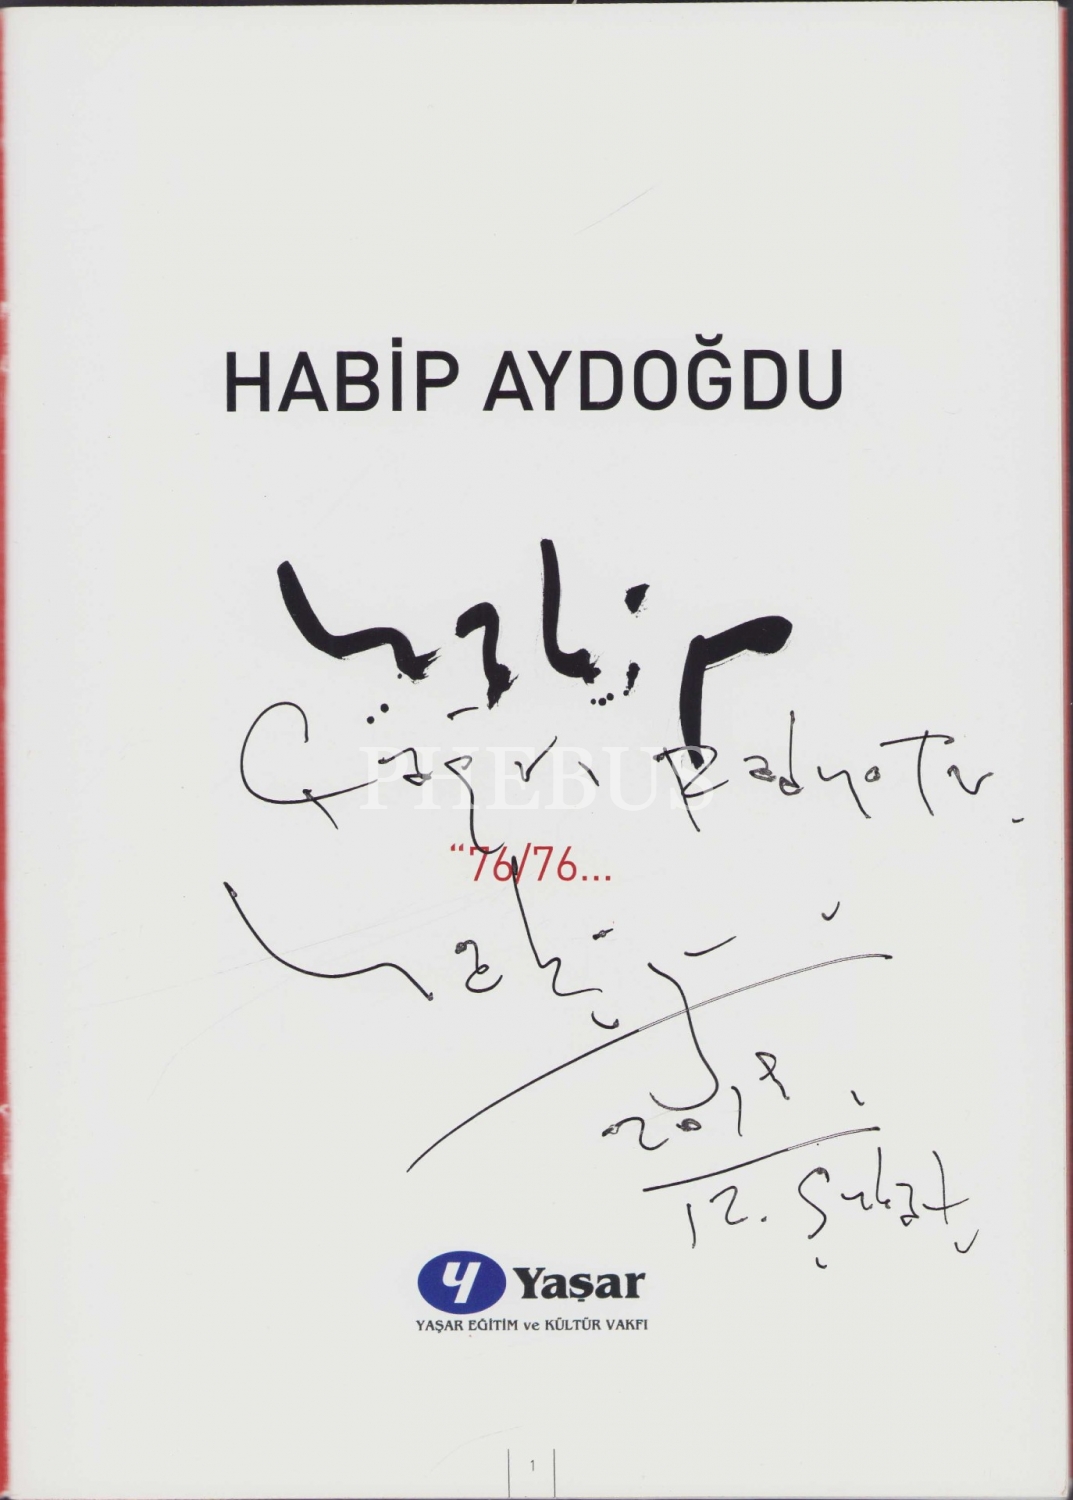 HABİP AYDOĞDU
habip
Çağrı Radyo Tv
PHEBUS
"76/76...
Habip
2019
12. Şubat
Yaşar
YAŞAR EĞİTİM ve KÜLTÜR VAKFI
1